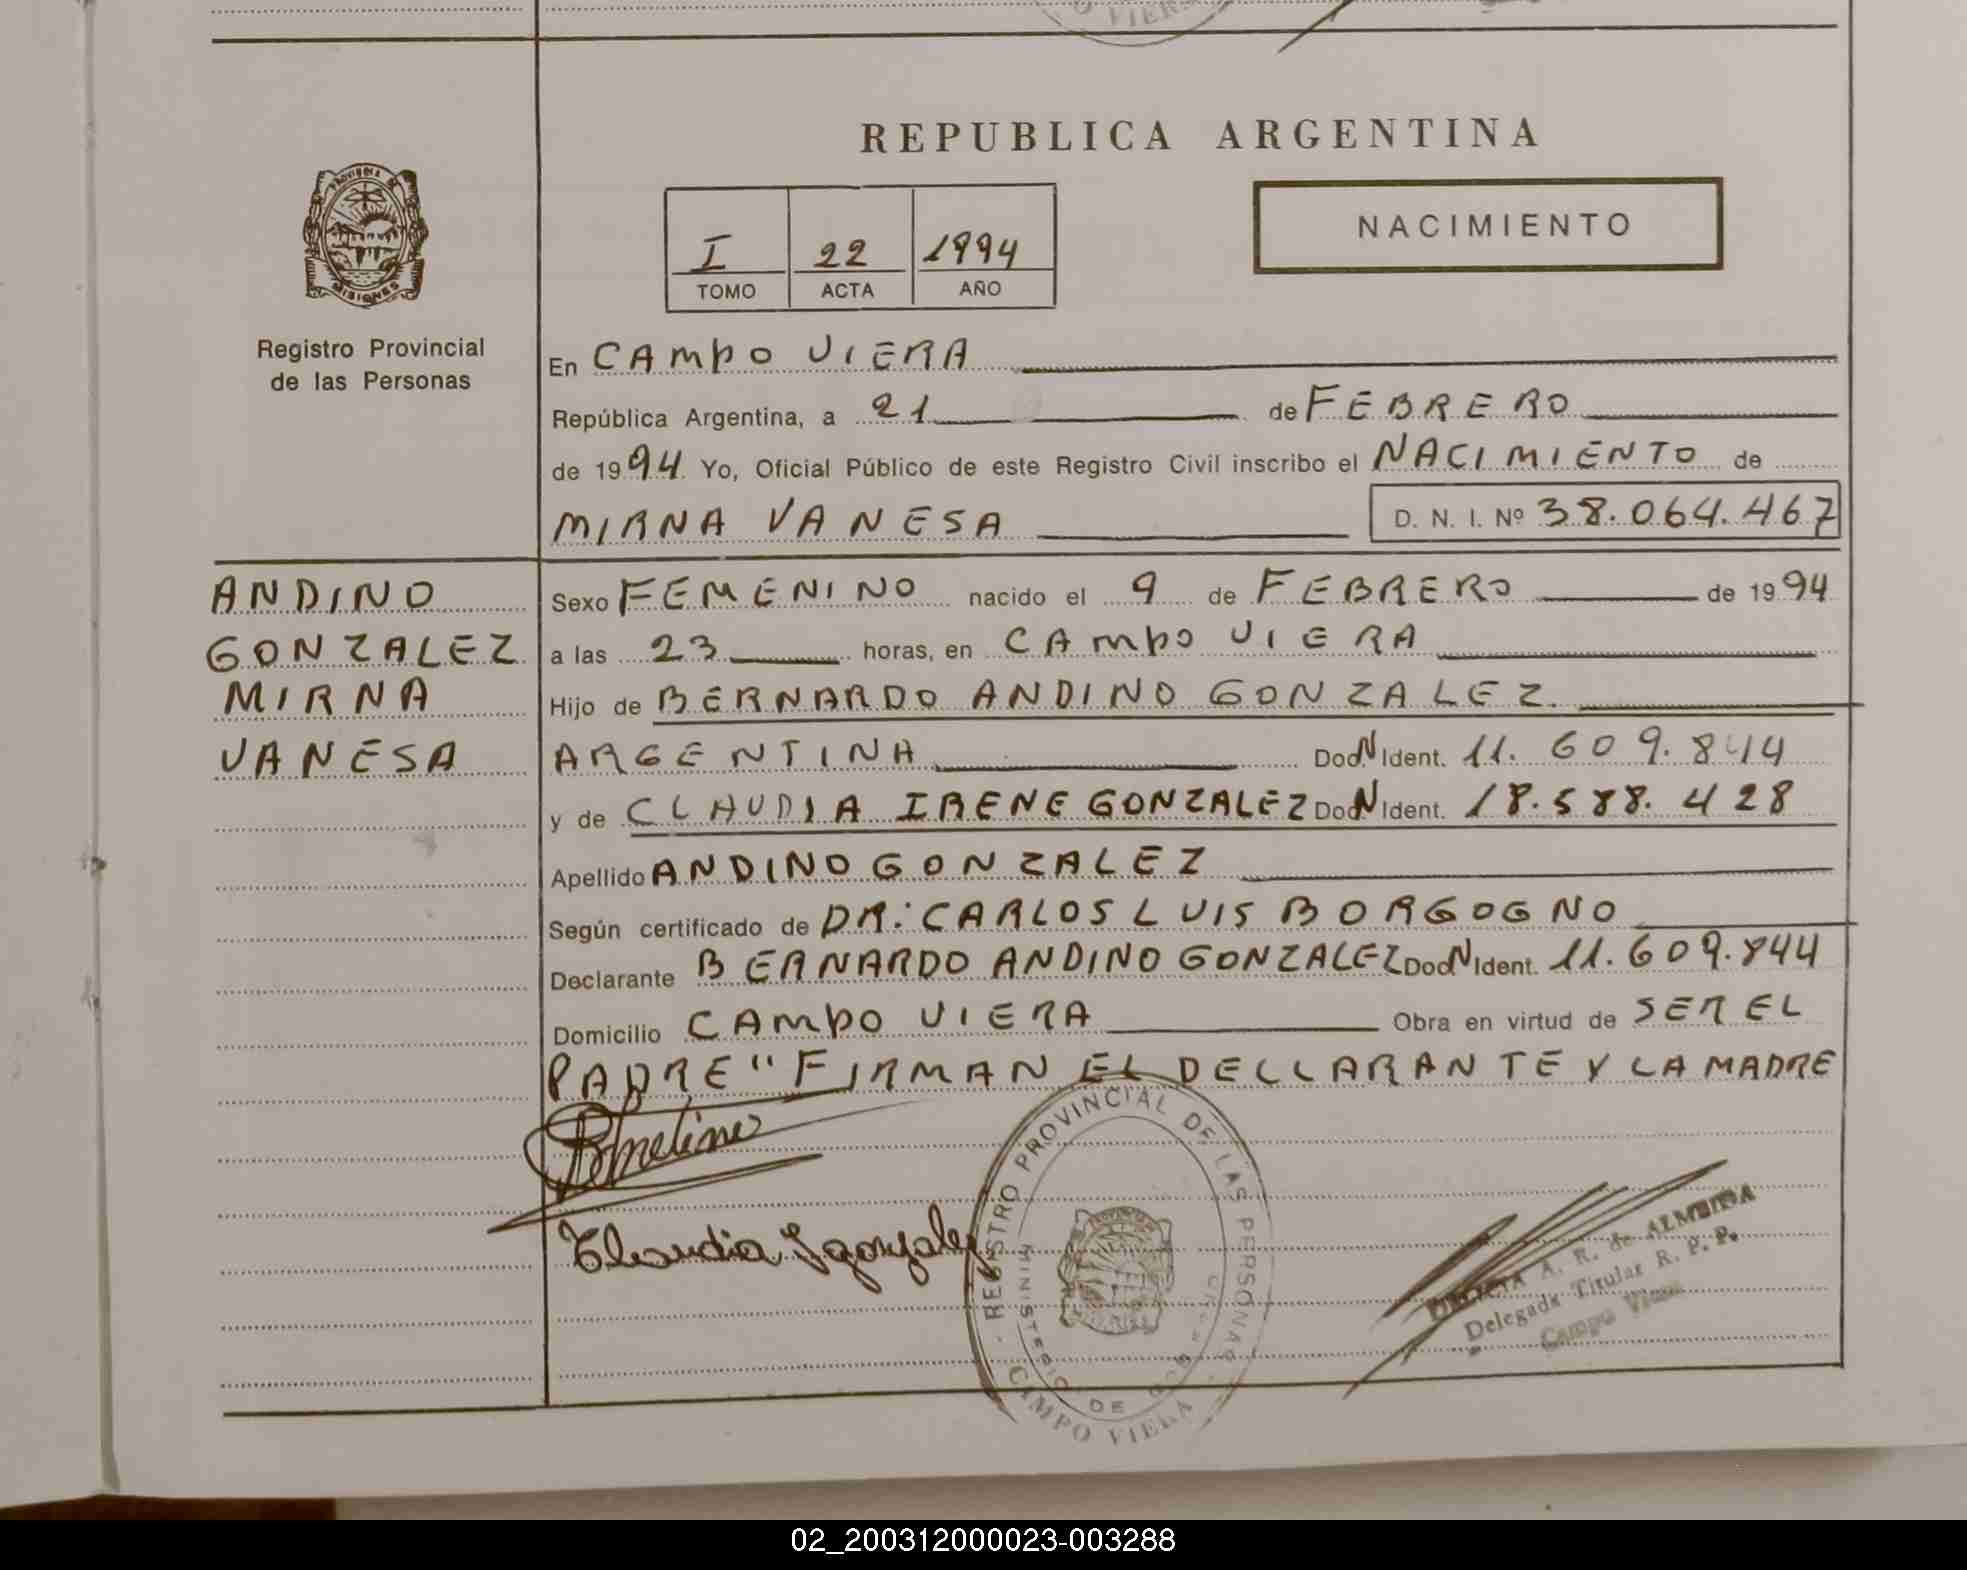 REPUBLICA ARGENTINA
PROVINCIA DE
MISIONES
Registro Provincial
de las Personas
I 22 1994
TOMO ACTA AÑO
NACIMIENTO
En CAMPO VIERA
República Argentina, a 21 de FEBRERO
de 1994. Yo, Oficial Público de este Registro Civil inscribo el NACIMIENTO de
MIRNA VANESA D. N. I. Nº 38.064.467
ANDINO
GONZALEZ
MIRNA
VANESA
Sexo FEMENINO nacido el 9 de FEBRERO de 1994
a las 23 horas, en CAMPO VIERA
Hijo de BERNARDO ANDINO GONZALEZ.
ARGENTINA Doc.N Ident. 11.609.844
y de CLAUDIA IRENE GONZALEZ Doc.N Ident. 18.588.428
Apellido ANDINO GONZALEZ
Según certificado de DR: CARLOS LUIS BORGOGNO
Declarante BERNARDO ANDINO GONZALEZ Doc.N Ident. 11.609.844
Domicilio CAMPO VIERA Obra en virtud de SER EL
PADRE " FIRMAN EL DECLARANTE Y LA MADRE
Claudia I gonzalez
REGISTRO PROVINCIAL DE LAS PERSONAS
MINISTERIO DE
CAMPO VIERA
A. R. de ALMEIDA
Delegada Titular R. P. P.
Campo Viera
02_200312000023-003288